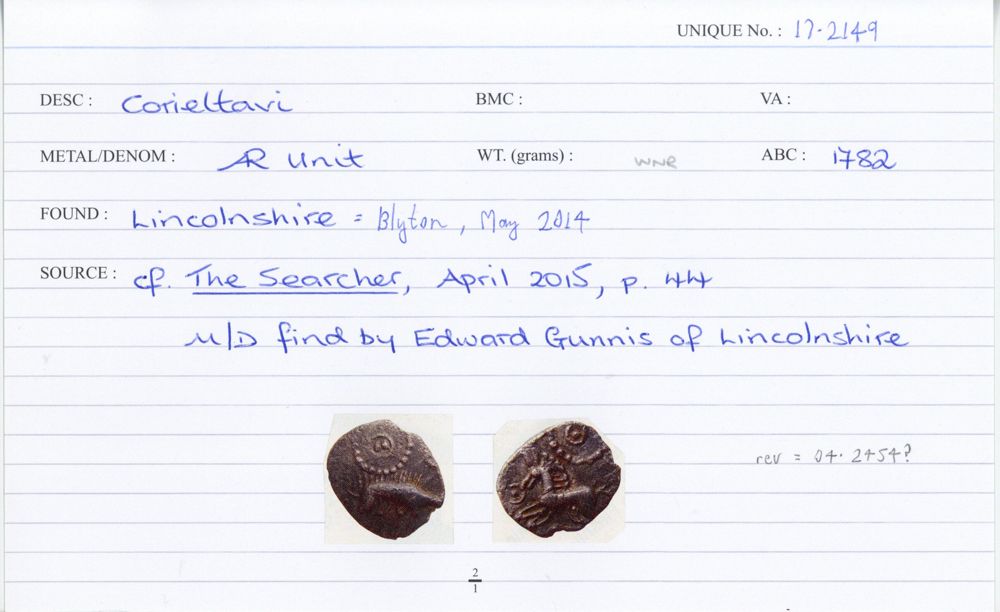 UNIQUE No. : 17.2149
DESC : Corieltavi BMC : VA :
METAL/DENOM : AR Unit WT. (grams) : WNR ABC : 1782
FOUND : Lincolnshire = Blyton, May 2014
SOURCE : cf. The Searcher, April 2015, p. 44
M/D find by Edward Gunnis of Lincolnshire
rev = 04.2454?
2
1